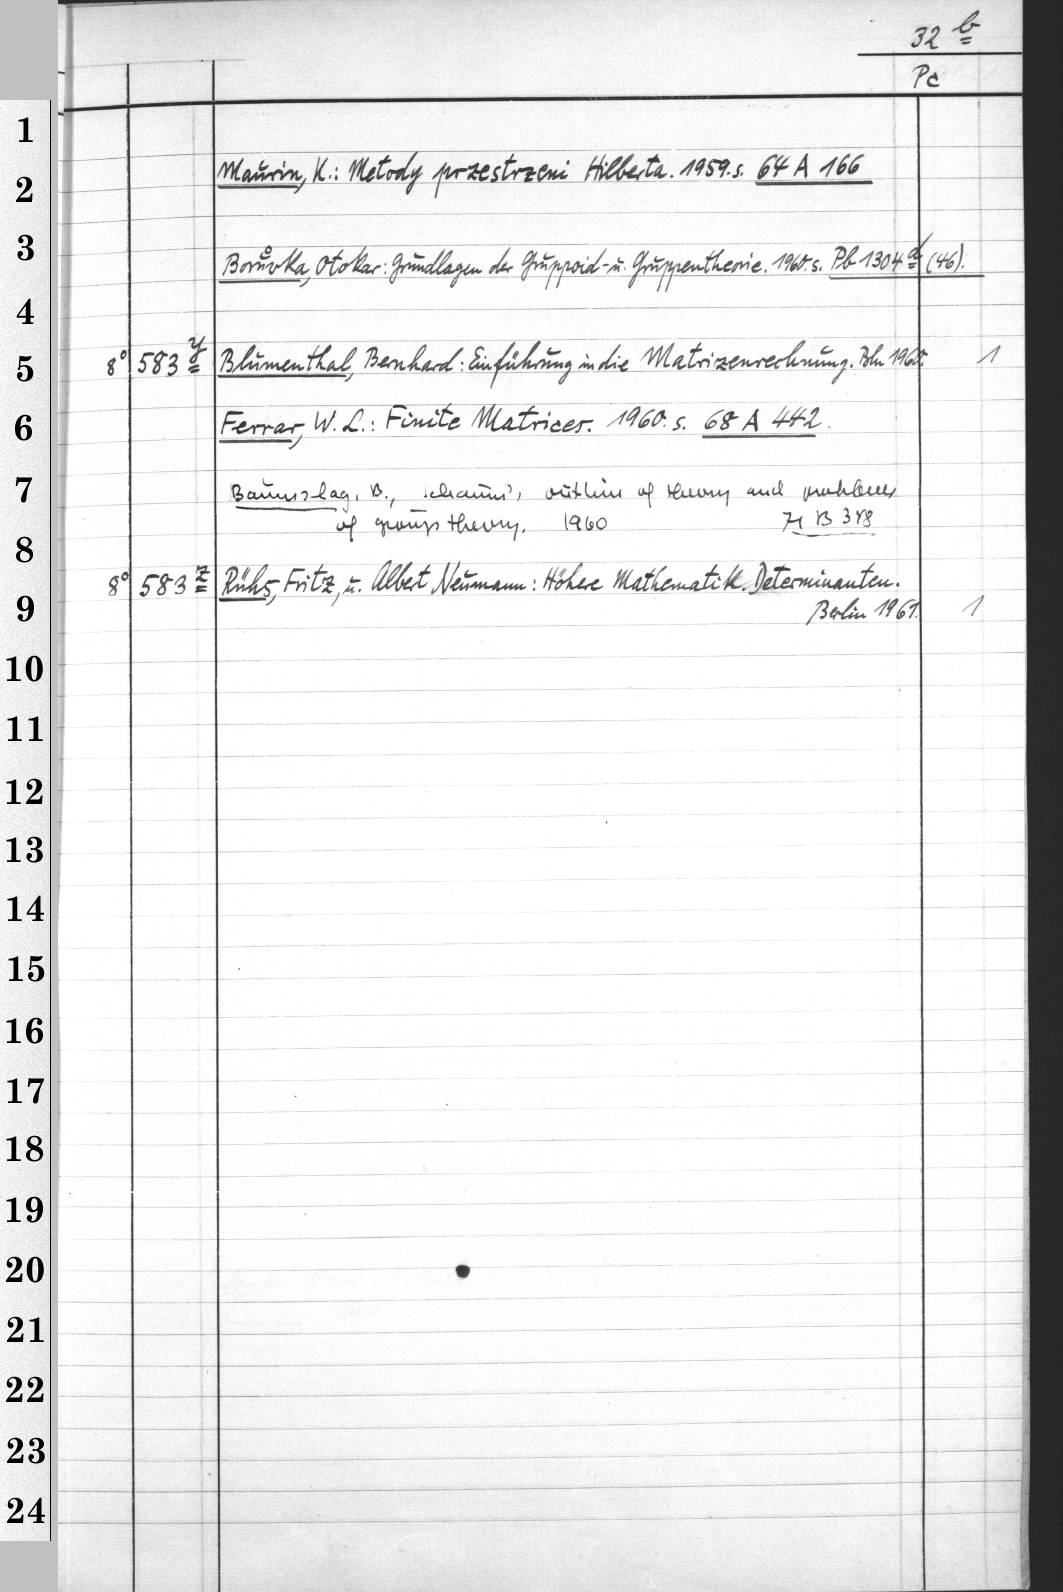 32 b
Pc
1
2 Maurin, K.: Metody przestrzeni Hilberta. 1959. s. 64 A 166
3 Borůvka, Otokar: Grundlagen der Gruppoid- u. Gruppentheorie. 1960. s. Pb 1304 d (46).
4
5 8° 583 y Blumenthal, Bernhard: Einführung in die Matrizenrechnung. Bln 1960. 1
6 Ferrar, W. L.: Finite Matrices. 1960. s. 68 A 442.
7 Baumslag, B., Schaum's outline of theory and problems
of group theory. 1960 B 348
8
8° 583 z Rühs, Fritz, u. Albert Neumann: Höhere Mathematik. Determinanten.
9 Berlin 1961. 1
10
11
12
13
14
15
16
17
18
19
20
21
22
23
24